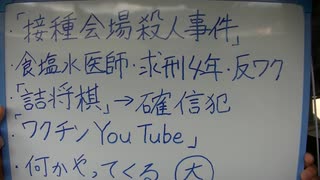 ・「接種会場殺人事件」
・食塩水医師・求刑4年・反ワク
・「詰将棋」→確信犯
・「ワクチンYouTube」
・何かやってくる 大